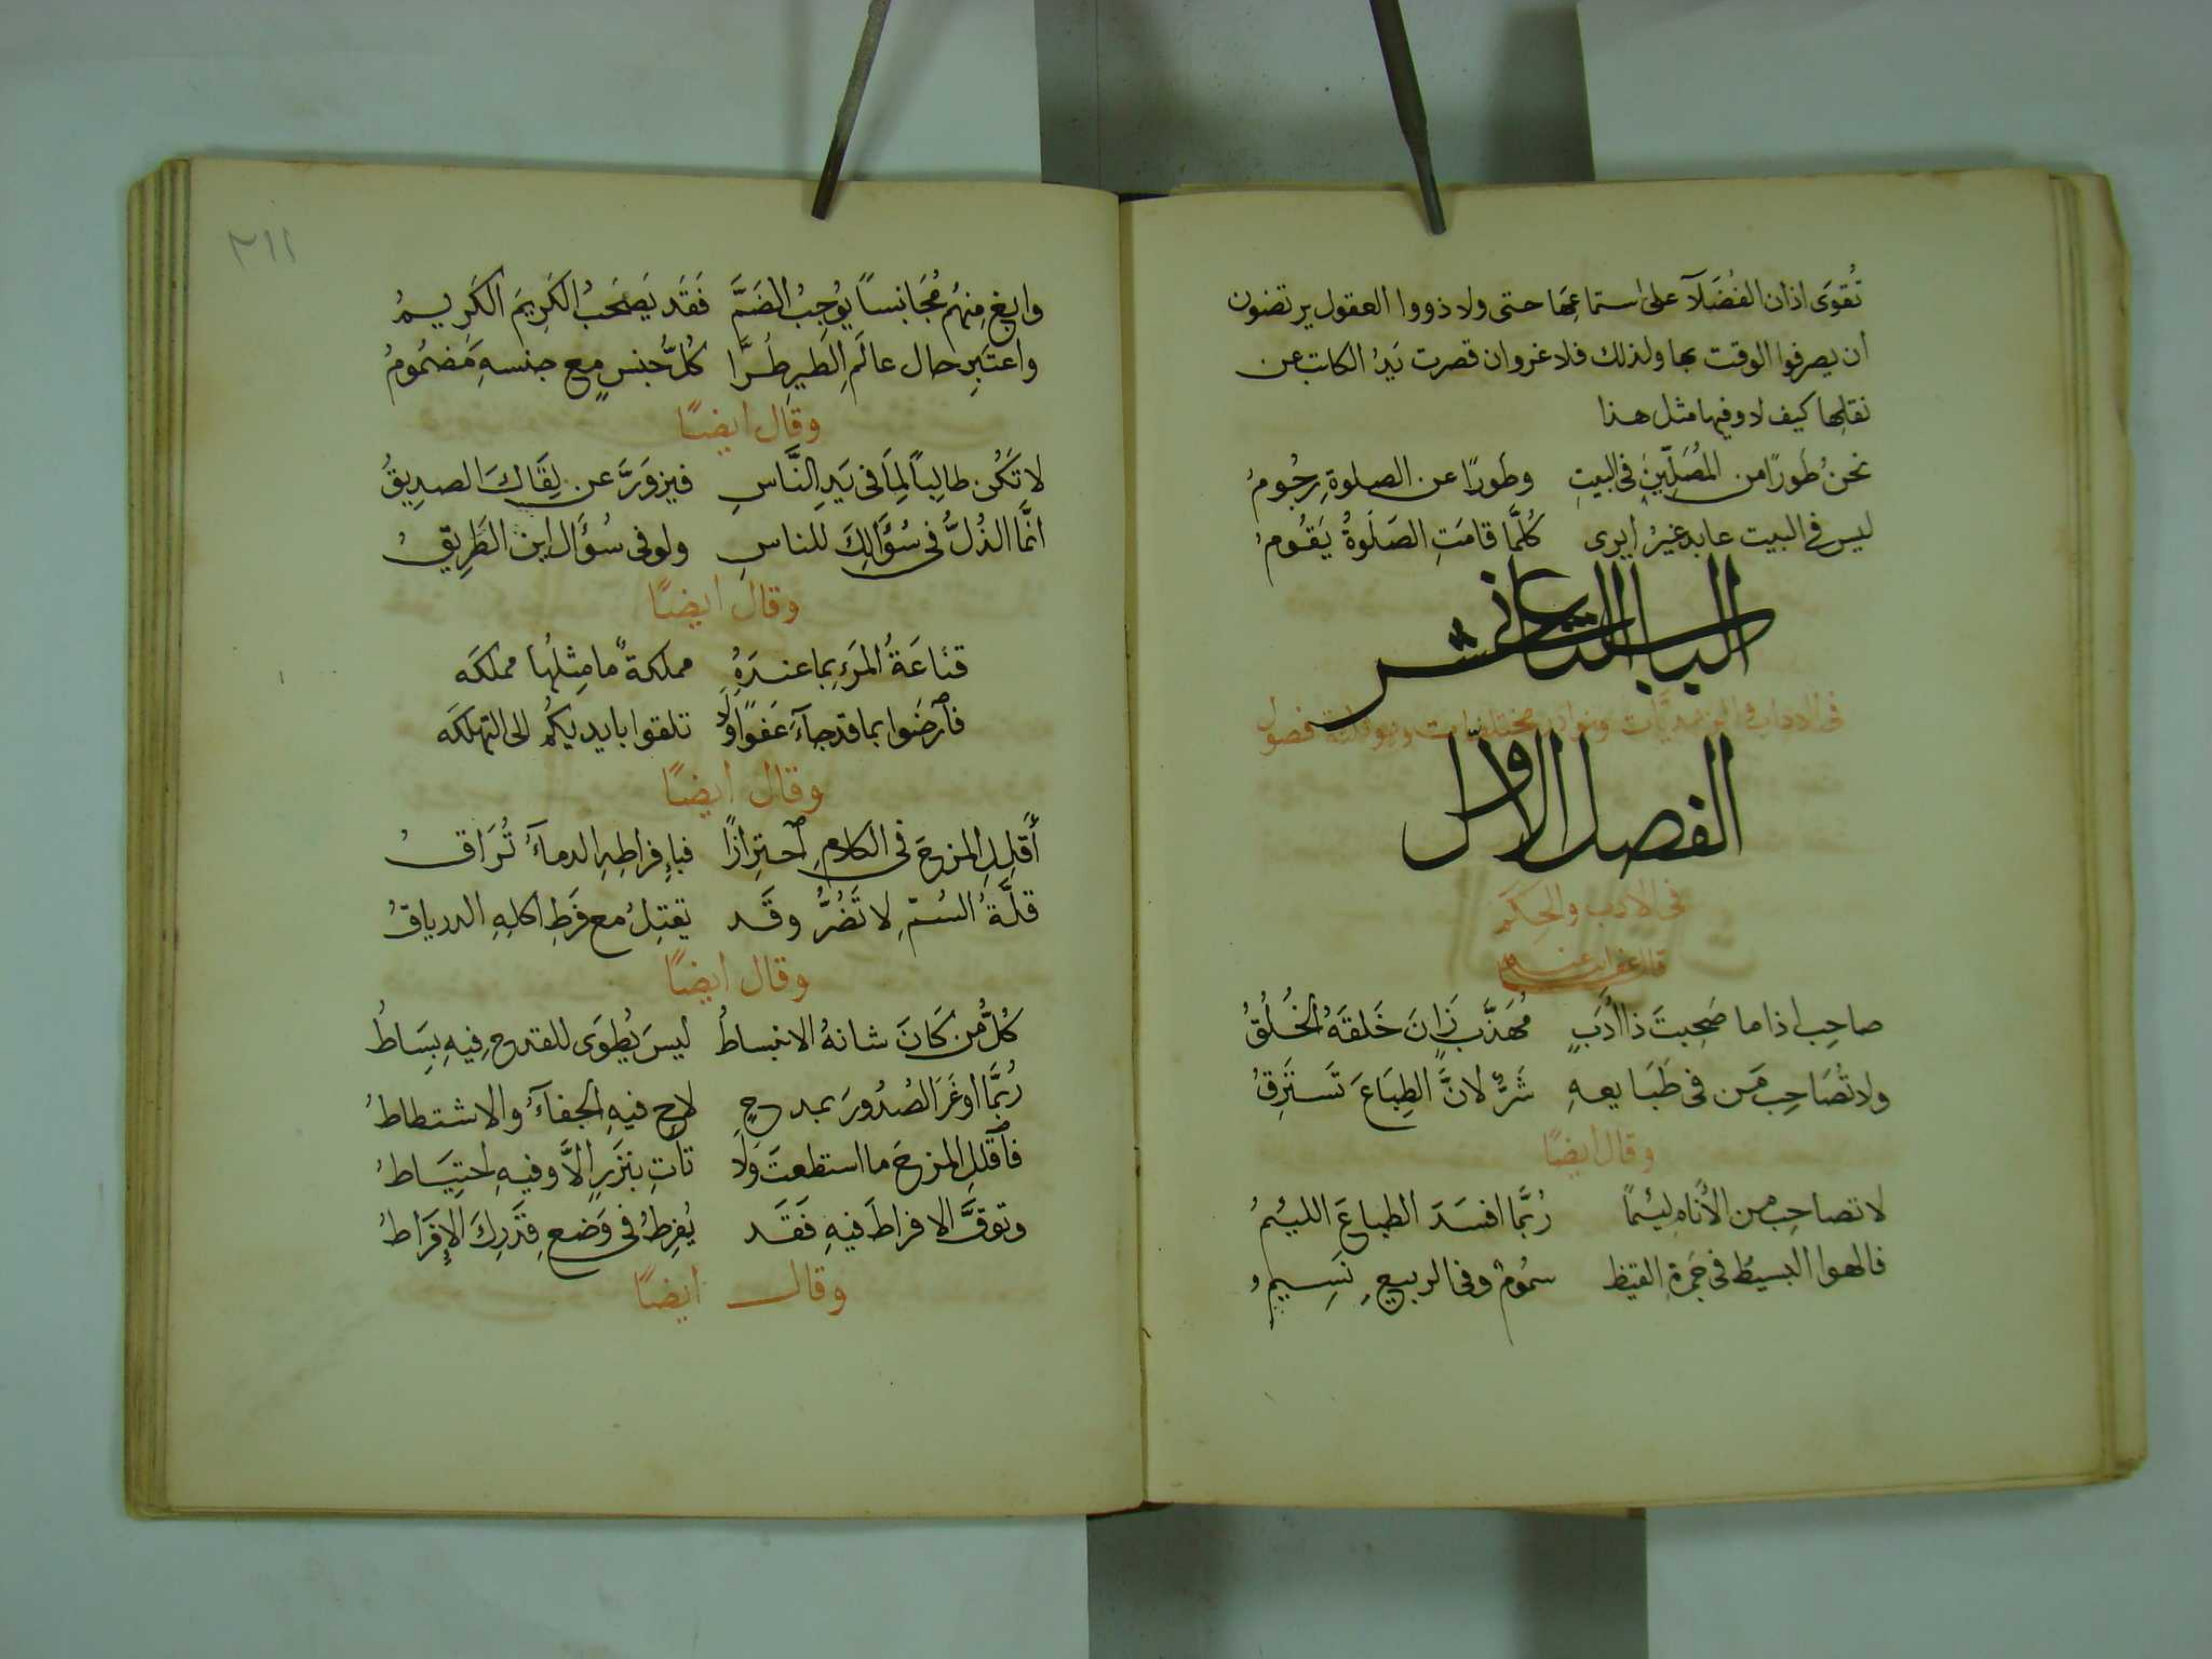 تُقوَى اذان الفُضَلآ على استماعِها حتى ولا ذووا العقول يرتضون
ان يصرفوا الوقت بها ولذلك فلا غروان قصرت يَدُ الكاتب عن
نقلِها كيف لا وفيها مثل هذا
نحنُ طَورًا من المُصَلِّينَ فى البيتِ وطَورًا عن الصلوةِ رجُومُ
ليس فى البيت عابد غيرُ ايرى كُلَّما قامَتِ الصَلَوةُ يَقُومُ
الباب الثانى عشر
فى الاداب و الزهديّات ونوادر مختلفات وهو ثلثة فصول
الفصل الاول
فى الادب والحِكَم
قال عفى الله عنه
صاحِب اذا ما صَحِبتَ ذا ادَبٍ مُهَذَّبٍ زانَ خَلقَهُ الخُلُقُ
ولا تُصَاحِب مَن فى طَبَايعهِ شَرٌّ لانَّ الطِبَاعَ تَستَرِقُ
وقال ايضًا
لا تصاحِب من الأَنامِ ليئمًا رُبَّما افسَدَ الطباعَ الليئمُ
فالهوا البسيطُ فى جَمرةِ القيظ سمُومٌ وفى الربيعِ نَسِيمُ
٢١١
وابغِ مِنهُم مُجَانسًا يُوجِبُ الضَمَّ فَقَد يَصحَبُ الكَرِيمَ الكَرِيمُ
واعتَبِر حال عالَمِ الطَيرِ طُرًّا كُلُّ جنسٍ مع جنسهِ مَضمُومُ
وقال ايضًا
لا تَكُن طالِبًا لِمَا فى يَدِ النَّاسِ فيزوَرَّ عن لِقَاكَ الصدِيقُ
انَّما الذُلُّ فى سُؤَالِكَ للناسِ ولو فى سُؤَال اين الطَرِيقُ
وقال ايضًا
قنَاعَةُ المَرءِ بما عندَهُ مملكةٌ ما مِثلُها مملكَه
فارضَوا بما قد جآءَ عَفوًا وَلَا تلقوا بايديكُم الى التهلكَه
وقال ايضًا
أَقلِلِ المزحَ فى الكلامِ احتِرازًا فباِفراطِهِ الدمآءُ تُرَاقُ
قلَّةُ السُمِّ لا تَضُرُّ وقَد يقتِلُ مع فَرَطِ اكلِهِ الدرياقُ
وقال ايضًا
كُلُّ مَن كَانَ شانهُ الانبساطُ ليسَ يُطوَى للقدحِ فيهِ بِسَاطُ
رُبَّما اوغَرَ الصُدُورَ بمدحٍ لاح فيهِ الجفآءُ والاشتطاطُ
فاقلِلِ المزحَ ما استطعتَ وَلَا تأتِ بنَزرٍ الَّا وفيهِ احتِيَاطُ
وتوقَّ الافراطَ فيهِ فَقَد يُفرِطُ فى وَضعِ قَدرِكَ الاِفرَاطُ
وقال ايضًا